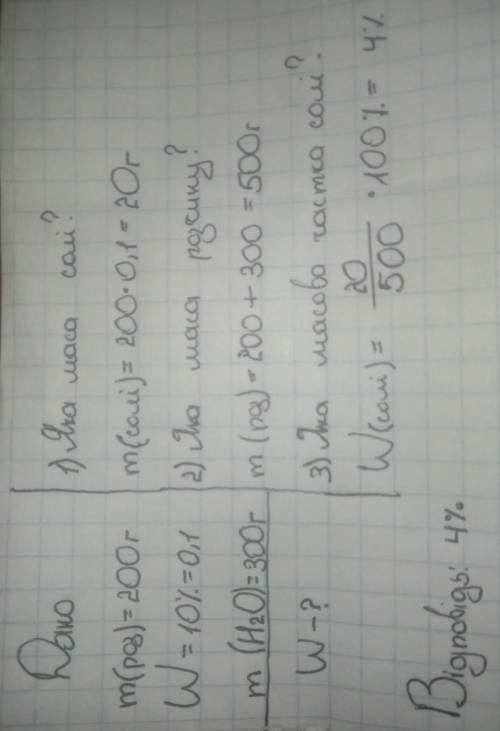 Дано
m(роз)=200г
W=10%=0,1
m(H₂O)=300г
W-?
1) Яка маса солі?
m(солі)=200·0,1=20г
2) Яка маса розчину?
m(роз)=200+300=500г
3) Яка масова частка солі?
W(солі)= 20/500 ·100%=4%
Відповідь: 4%